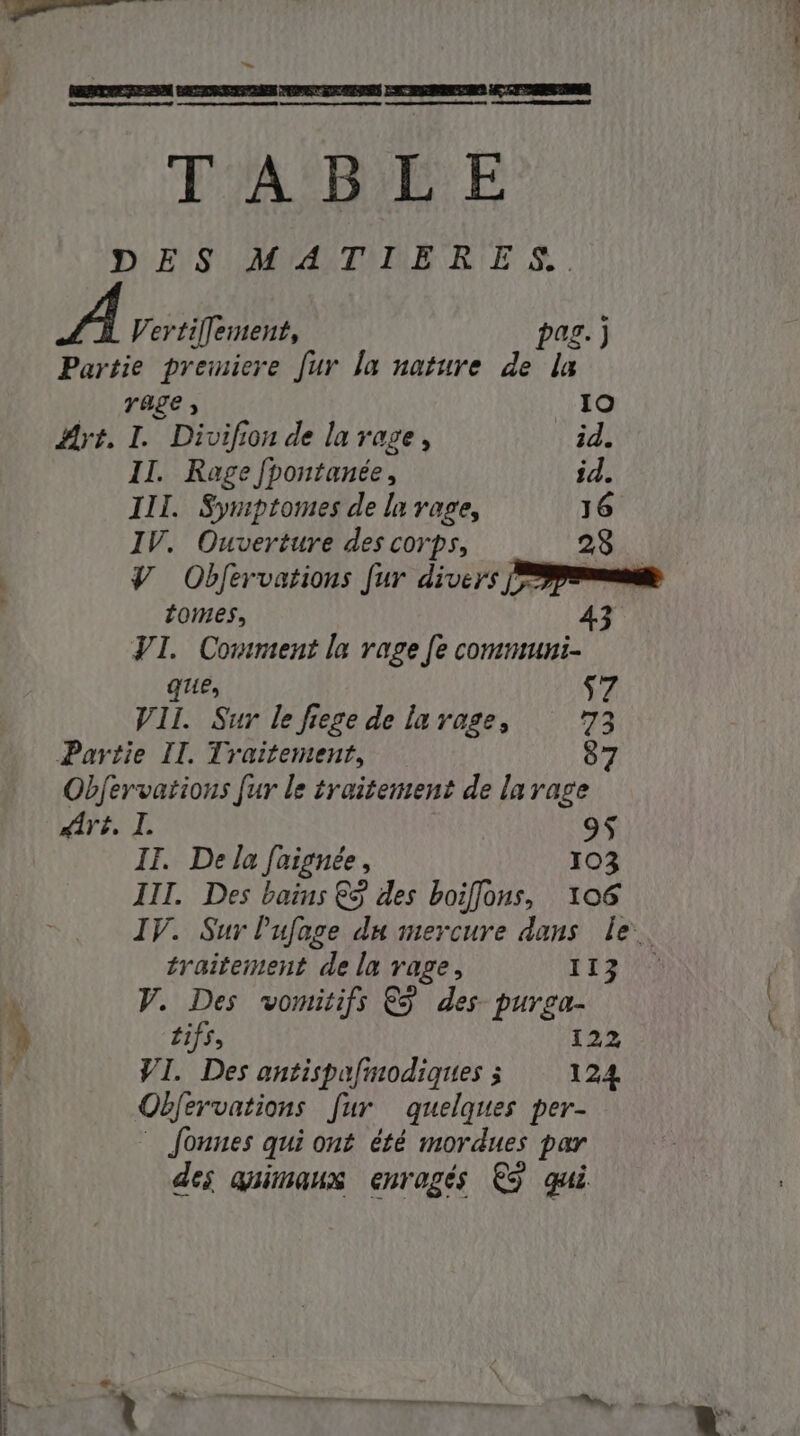 TABLE
DES MATIERES.
AVertiſſement, pag. j
Partie premiere ſur la nature de la
rage, 10
Art. I. Diviſion de la rage, id.
II. Rage ſpontanée, id.
III. Symptomes de la rage, 16
IV. Ouverture des corps, 28
V Obſervations ſur divers
tomes, 43
VI. Comment la rage ſe communi-
que, 57
VII. Sur le ſiege de la rage, 73
Partie II. Traitement, 87
Obſervations ſur le traitement de la rage
Art. I. 95
II. De la ſaignée, 103
III. Des bains & des boiſſons, 106
IV. Sur l'uſage du mercure dans le
traitement de la rage, 113
V. Des vomitifs & des purga-
tifs, 122
VI. Des antispaſmodiques ; 124
Obſervations ſur quelques per-
ſonnes qui ont été mordues par
des animaux enragés & qui